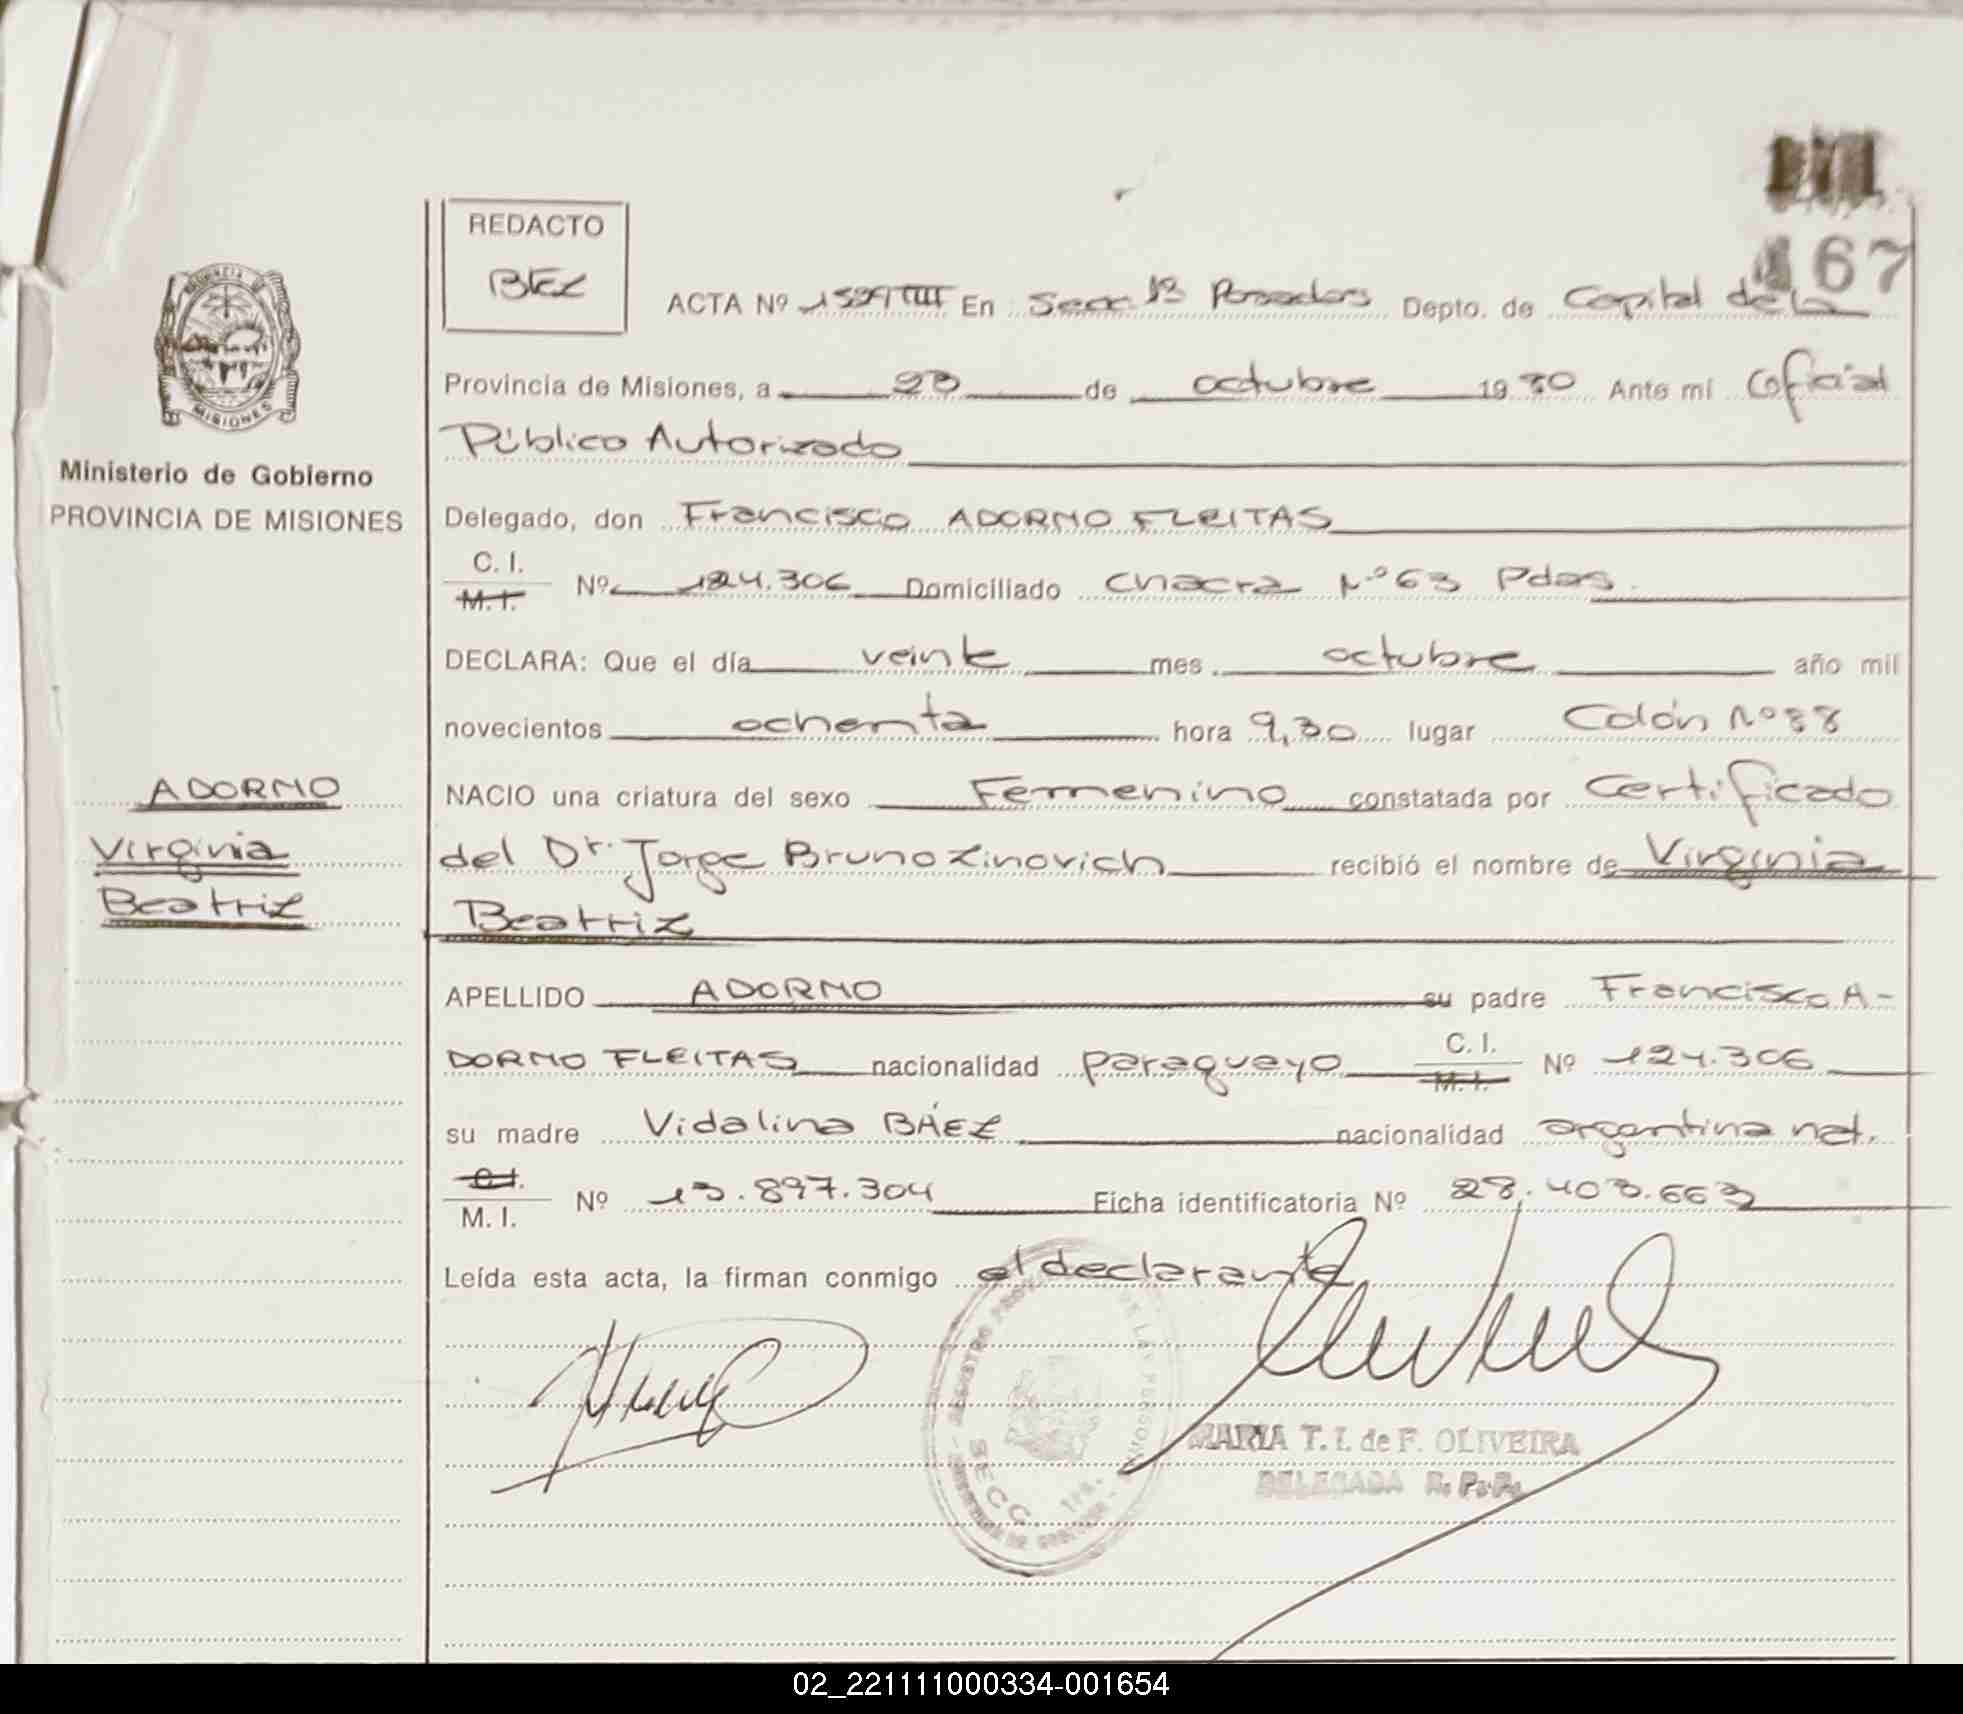 467
REDACTO
BÉZ
ACTA Nº 1529 TIII En Secc. 1ª Posadas Depto. de Capital de la
Provincia de Misiones, a 23 de octubre 1980 Ante mí Oficial
Público Autorizado
Delegado, don Francisco ADORNO FLEITAS
C. I.
M. I. Nº 124.306 Domiciliado Chacra Nº 63 Pdas.
DECLARA: Que el día veinte mes octubre año mil
novecientos ochenta hora 9,30 lugar Colón Nº 88
NACIO una criatura del sexo Femenino constatada por Certificado
del Dr. Jorge Bruno Zinovich recibió el nombre de Virginia
Beatriz
APELLIDO ADORNO su padre Francisco A-
DORNO FLEITAS nacionalidad paraguayo C. I. M. I. Nº 124.306
su madre Vidalina BÁEZ nacionalidad argentina nat.
C. I.
M. I. Nº 13.897.304 Ficha identificatoria Nº 28.403.663
Leída esta acta, la firman conmigo el declarante
MARIA T. I. de F. OLIVEIRA
DELEGADA R. P. P.
SECC. 1ra.
MISIONES
Ministerio de Gobierno
PROVINCIA DE MISIONES
ADORNO
Virginia
Beatriz
02_221111000334-001654